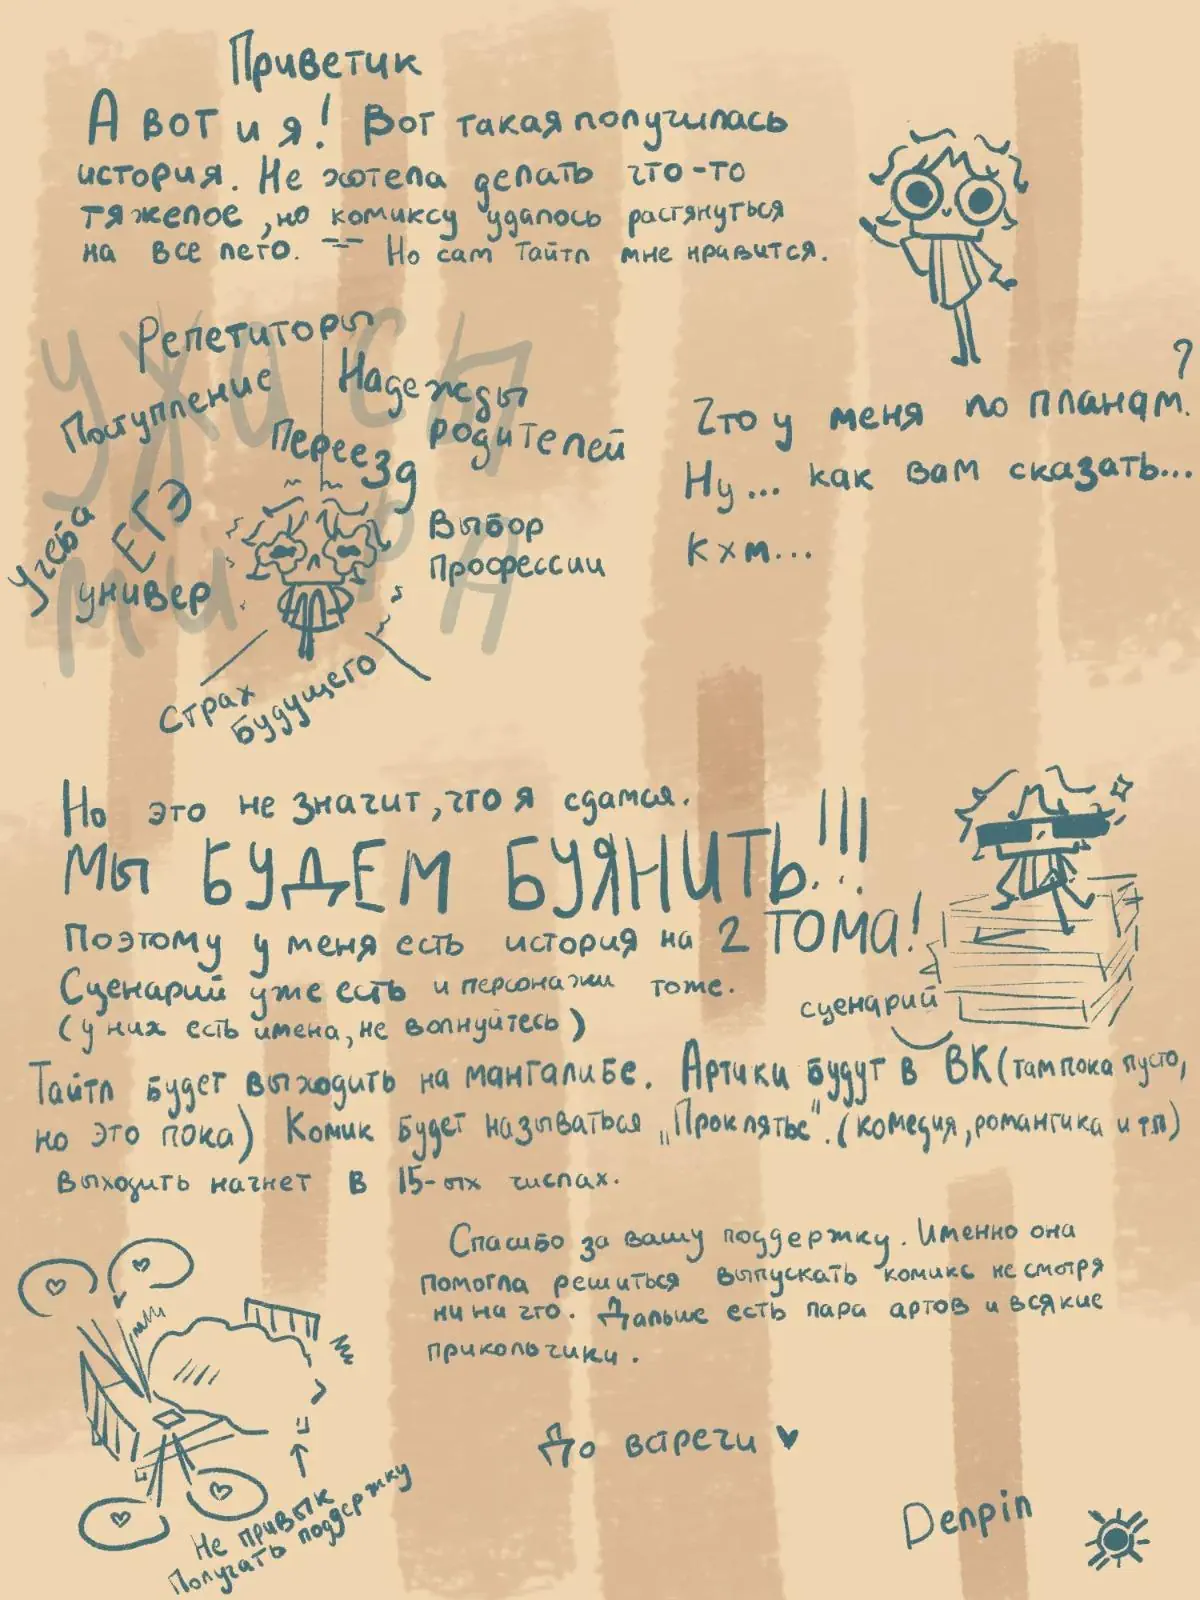 Приветик
А вот и я! Вот такая получилась
история. Не хотела делать что-то
тяжелое, но комиксу удалось растянуться
на все лето. Но сам тайтл мне нравится.
Ужасы
мира
Репетиторы
Поступление
Надежды
родителей
Переезд
Учеба
ЕГЭ
универ
Выбор
профессии
Страх
будущего
Что у меня по планам?
Ну... как вам сказать...
Кхм...
Но это не значит, что я сдамся.
МЫ БУДЕМ БУЯНИТЬ!!!
Поэтому у меня есть история на 2 ТОМА!
Сценарий уже есть и персонажи тоже.
(у них есть имена, не волнуйтесь)
сценарий
Тайтл будет выходить на мангалибе. Артики будут в ВК (там пока пусто,
но это пока) Комик будет называться „Проклятье". (комедия, романтика и т.п)
Выходить начнет в 15-ых числах.
Спасибо за вашу поддержку. Именно она
помогла решиться выпускать комикс не смотря
ни на что. Дальше есть пара артов и всякие
прикольчики.
Не привык
получать поддержку
До встречи
Denpin